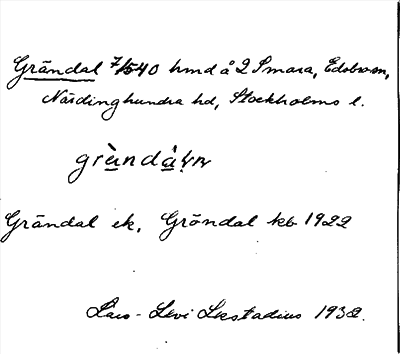 Grändal 7/540 hmd å 2 Smara, Edsbro sn,
Närdinghundra hd, Stockholms l.
Grändal ek, Gröndal kb 1922
Lars-Levi Læstadius 1932.